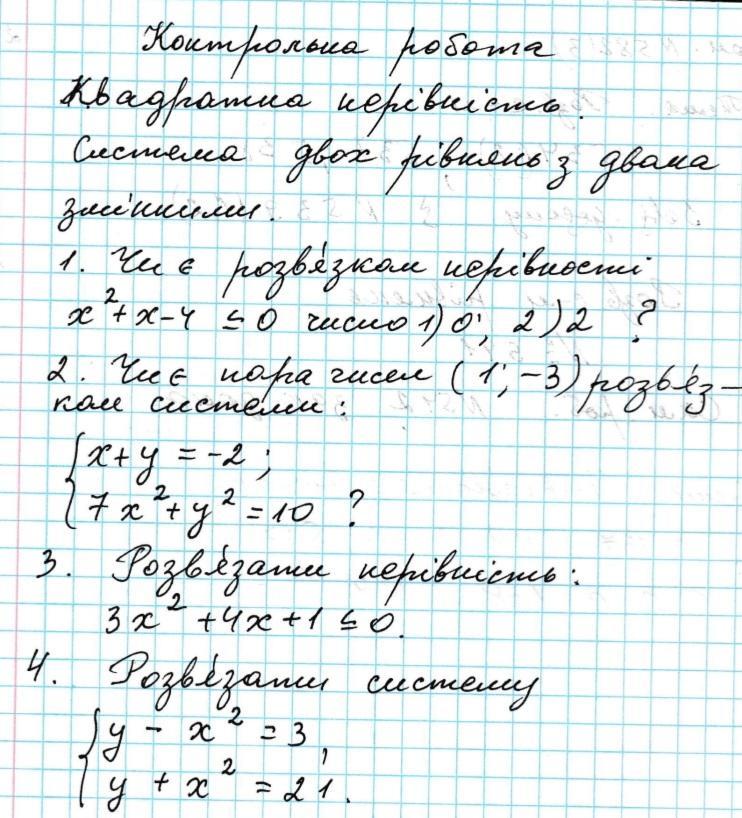 Контрольна робота
Квадратна нерівність.
Система двох рівнянь з двома
змінними.
1. Чи є розв'язком нерівності
x²+x-4 ≤ 0 число 1) 0; 2) 2 ?
2. Чи є пара чисел (1; -3) розв'яз-
ком системи:
{ x+y = -2 ;
7x²+y² = 10 ?
3. Розв'язати нерівність:
3x² +4x+1 ≤ 0.
4. Розв'язати систему
{ y - x² = 3,
y + x² = 21.